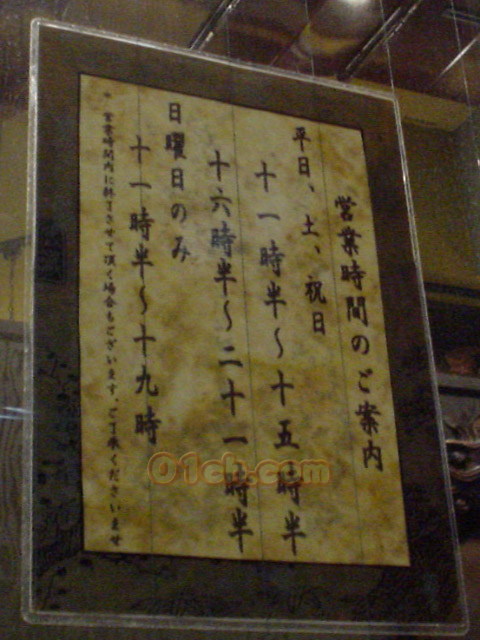 営業時間のご案内
平日、土、祝日
十一時半～十五時半
十六時半～二十一時半
日曜日のみ
十一時半～十九時
*営業時間内に終了させて頂く場合もございます、ご了承くださいませ
01cb.com